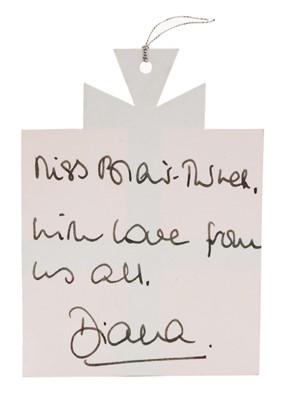 Miss Blair-Turner.
With love from
us all.
Diana.